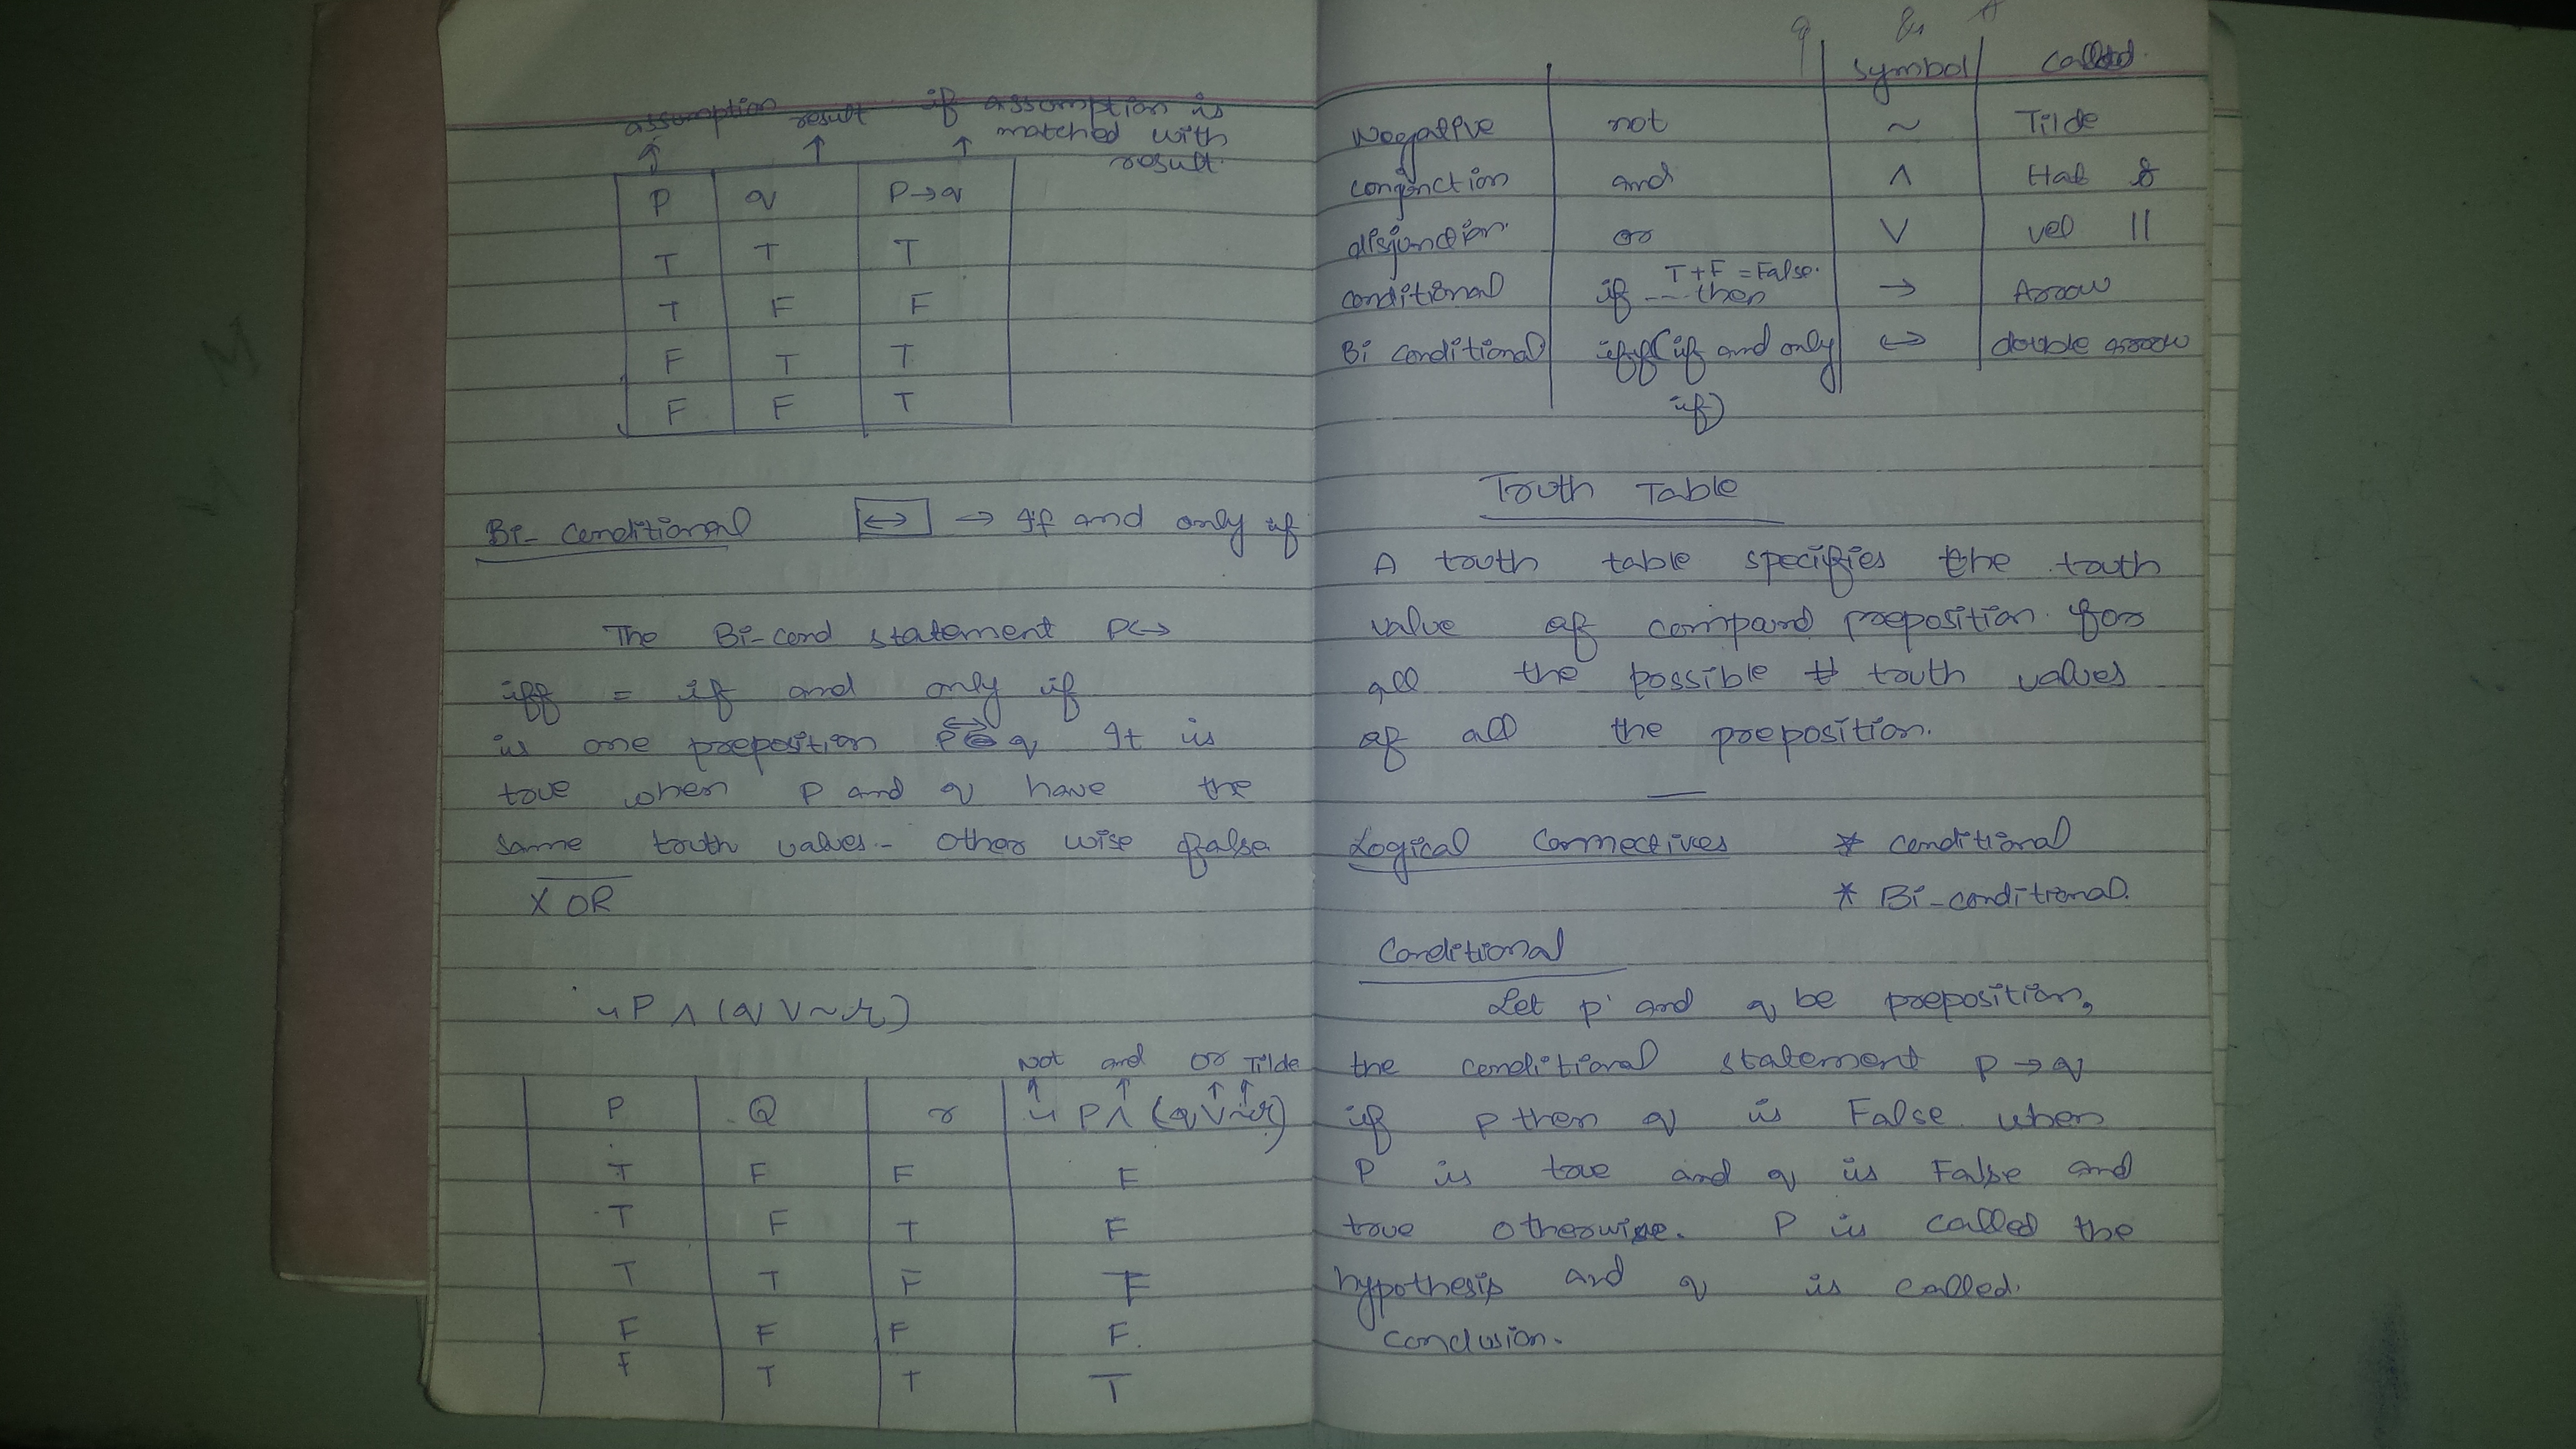 assumption result if assumption is
matched with
result.
P q P→q
T T T
T F F
F T T
F F T
Bi- Conditional ↔ → If and only if
The Bi-cond statement P↔
iff = if and only if
is one preposition P↔q It is
true when P and q have the
same truth values.- Other wise false
X OR
~P ∧ (q ∨ ~r)
Not and or Tilde
P Q r ~ P ∧ (q ∨ ~r)
T F F F
T F T F
T T F F
F F F F.
F T T T
symbol called
Negative not ~ Tilde
conjnction and ∧ Hat &
disjunction. or ∨ vel ||
T+F = False.
conditional if --- then → Arrow
Bi conditional iff (if and only ↔ double arrow
if)
Truth Table
A truth table specifies the truth
value of compard preposition for
all the possible truth values
of all the preposition.
Logical Connectives * conditional
* Bi-conditional.
Conditional
Let p and q be preposition,
the conditional statement P → q
if P then q is False when
P is true and q is False and
true otherwise. P is called the
hypothesis and q is called.
conclusion.